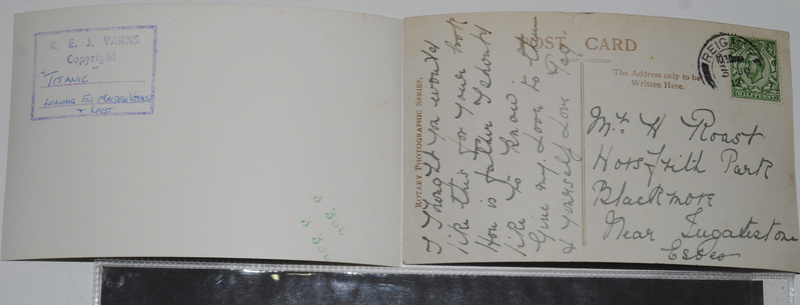 R. E. J. VARNS
Copyright
"TITANIC"
LEAVING FOR MAIDEN VOYAGE
+ LAST
ROTARY PHOTOGRAPHIC SERIES.
POST CARD
The Address only to be
Written Here.
I thought you would
like this for your book
How is father I should
like to know
Give my love to them
& yourself Love
REIG
Mr H Roast
Park
Blackmore
Near Ingatestone
Essex